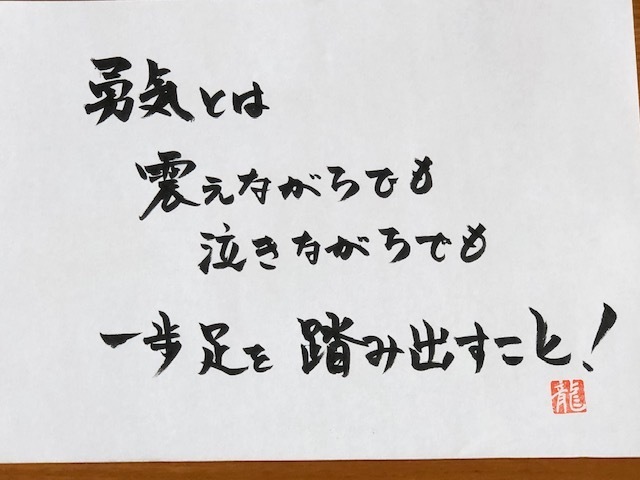 勇気とは
震えながらでも
泣きながらでも
一歩足を 踏み出すこと!
龍